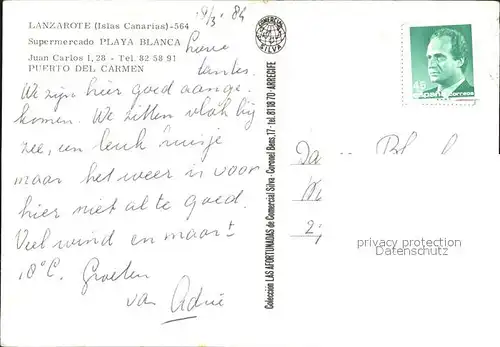 LANZAROTE (Islas Canarias)-564
Supermercado PLAYA BLANCA
Juan Carlos I, 28 - Tel. 82 58 91
PUERTO DEL CARMEN
9/3. 89
lieve
tantes.
We zijn hier goed aange-
komen. We zitten vlak bij
zee, een leuk huisje
maar het weer is voor
hier niet al te goed.
Veel wind en maar ±
18°C. Groeten
van Adrie
COMERCIAL
SILVA
Colección LAS AFORTUNADAS de Comercial Silva - Coronel Bens, 17 - tel. 81 18 70 - ARRECIFE
45
España correos
Da
privacy protection
Datenschutz